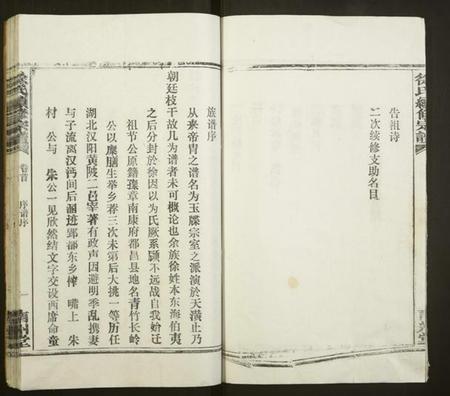 告祖诗
二次续修支助名目
徐氏續修宗譜
族谱序
从来帝胄之谱名为玉牒宗室之派演於天潢止乃
朝廷枝干故凡为谱者未可概论也余族徐姓本东海伯夷
之后分封於徐因以为氏厥系颢不远战自我始迁
祖节公原籍豫章南康府都昌县地名青竹长岭
公以廪膳生举乡荐三次未第后大挑一等历任
湖北汉阳黄陂二邑宰著有政声因避明季乱携妻
与子流离汉沔间后 郢都东乡榨嘴上朱
村公与朱公一见欣然结文字交设西席命童
徐氏續修宗譜
卷首
序谱序
一
南州堂